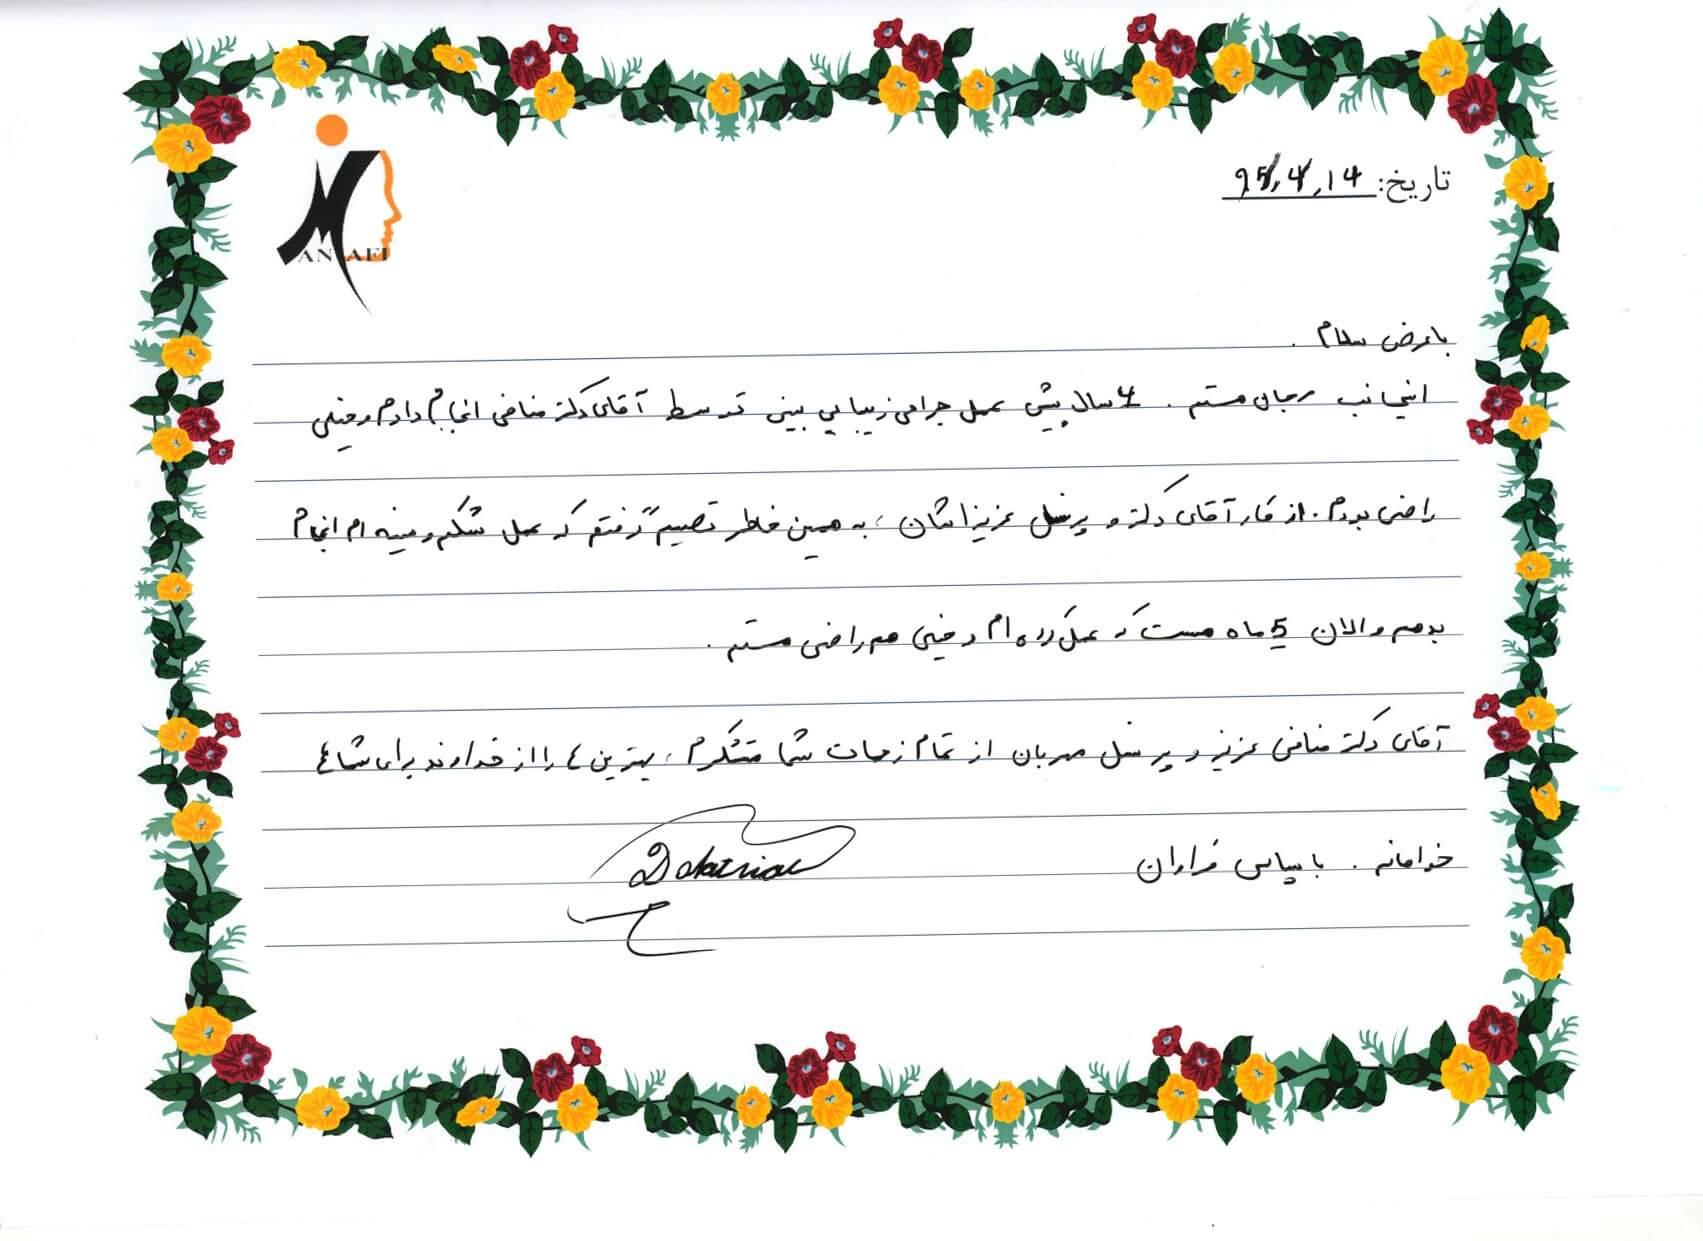 MANAFI
تاریخ: 95/4/14
با عرض سلام .
اینجانب مرجان هستم . 4 سال پیش عمل جراحی زیبایی بینی توسط آقای دکتر منافی انجام دادم و خیلی
راضی بودم . از کار آقای دکتر و پرسنل عزیزشان ، به همین خاطر تصمیم گرفتم که عمل شکم و سینه ام انجام
بدهم و الان 5 ماه هست که عمل کرده ام و خیلی هم راضی هستم .
آقای دکتر منافی عزیز و پرسنل مهربان از تمام زحمات شما متشکرم ، بهترین ها را از خداوند برای شما
خواهانم . با سپاس فراوان